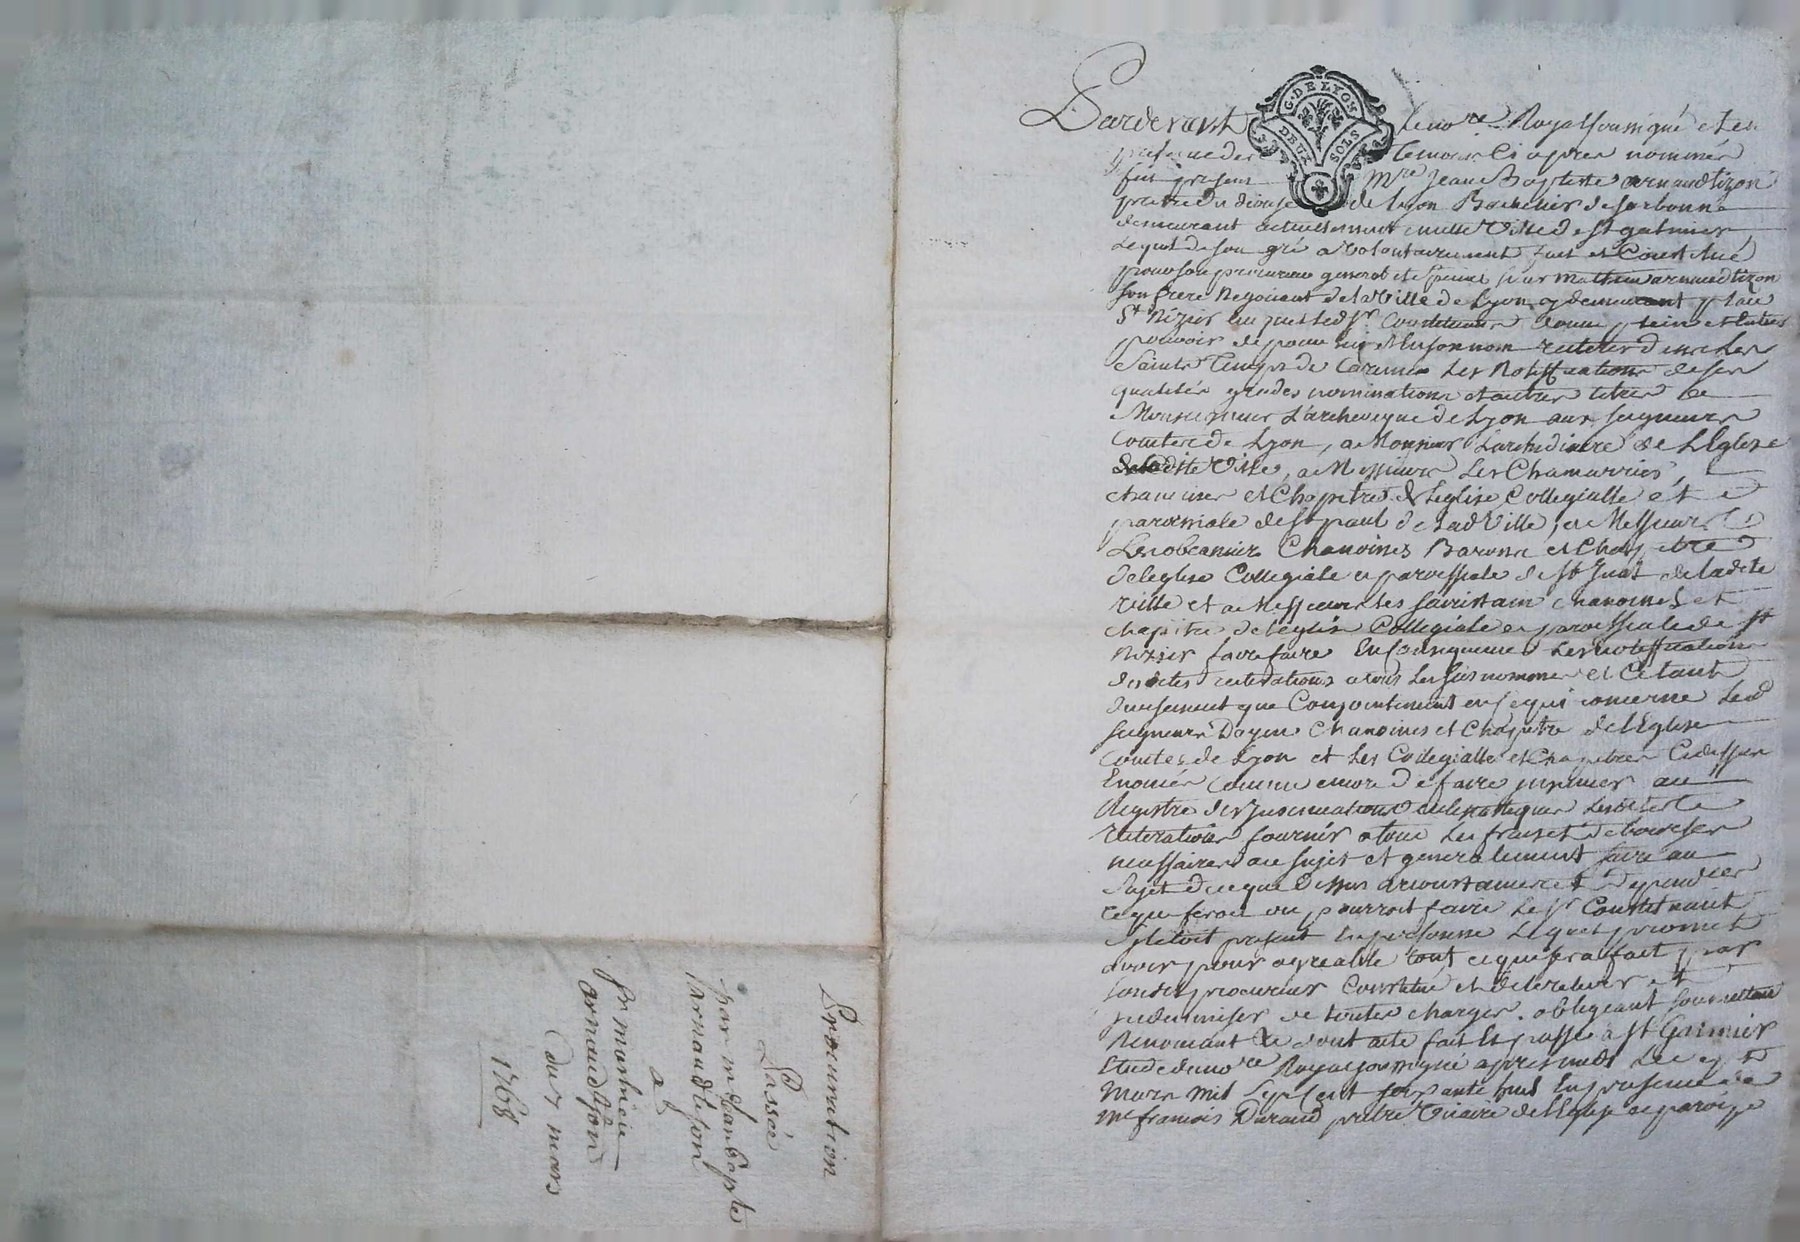 Procuration
Passée
par mr jean baptiste
arnaud tison
a
sr mathieu
arnaud tison
du 7 mars
1768
G. DE LYON
DEUX SOLS
Pardevant le nore Royal soussigné et en
presence des temoins ci apres nommés
fut present Mre Jean Baptiste arnaud tizon
pretre du diocese de lyon Bachelier de sorbonne
demeurant actuellement en cette Ville de st galmier
Lequel de son gré a volontairement fait et Constitué
pour son procureur general et special sieur mathieu arnaud tizon
son frere Negotiant de la Ville de Lyon y demeurant place
St Nizier auquel led sr Constituant donne plein et entier
pouvoir de pour lui et en son nom reiterer dans le
Saint Temps de Careme Les Notiffications de ses
qualités grades nominations et autres titres a
Monseigneur L'archeveque de Lyon aux seigneurs
Comtes de Lyon, a Monsieur L'archidiacre de L'Eglise
de ladite Ville, a Messieurs Les Chamarrier,
chanoines et Chapitre de Leglise Collegialle et
paroissiale de st paul de lad Ville, a Messieurs
Les obeancier Chanoines Barons et Chapitre
de leglise Collegiale et paroissiale de st Just de ladite
ville et a Messieurs les sacristain chanoines et
chapitre de leglise Collegiale et paroissiale de st
Nizier faire faire En Consequence les notiffications
desdites reiterations a tous les susnommés et Ce tant
divisement que Conjointement en ce qui concerne Lesd
seigneurs Doyen Chanoines et Chapitre de l'Eglise
Comtes de Lyon et les Collegialles et Chapitres Cidessus
Enoncés Comme encore de faire insinuer au
Registre des Insinuations Eclesiastiques lesdites
reiterations fournir a tous les frais et debourses
necessaires au sujet et generalement faire au
sujet de ce que Dessus circonstances et Dependances
ce que feroit ou pourroit faire le sr Constituant
s'il etoit present En personne Lequel promet
avoir pour agreable tout ce que sera fait par
sondit procureur Constitué et de le relever et
indemniser de toutes charges. obligeant soumettant
Renoncant &e dont acte fait Et passé à st Galmier
Etude du nore Royal soussigné apres midi Le sept
Mars mil sept cent soixante huit En presence de
Me francois Durand pretre Vicaire de l'Eglise et paroisse